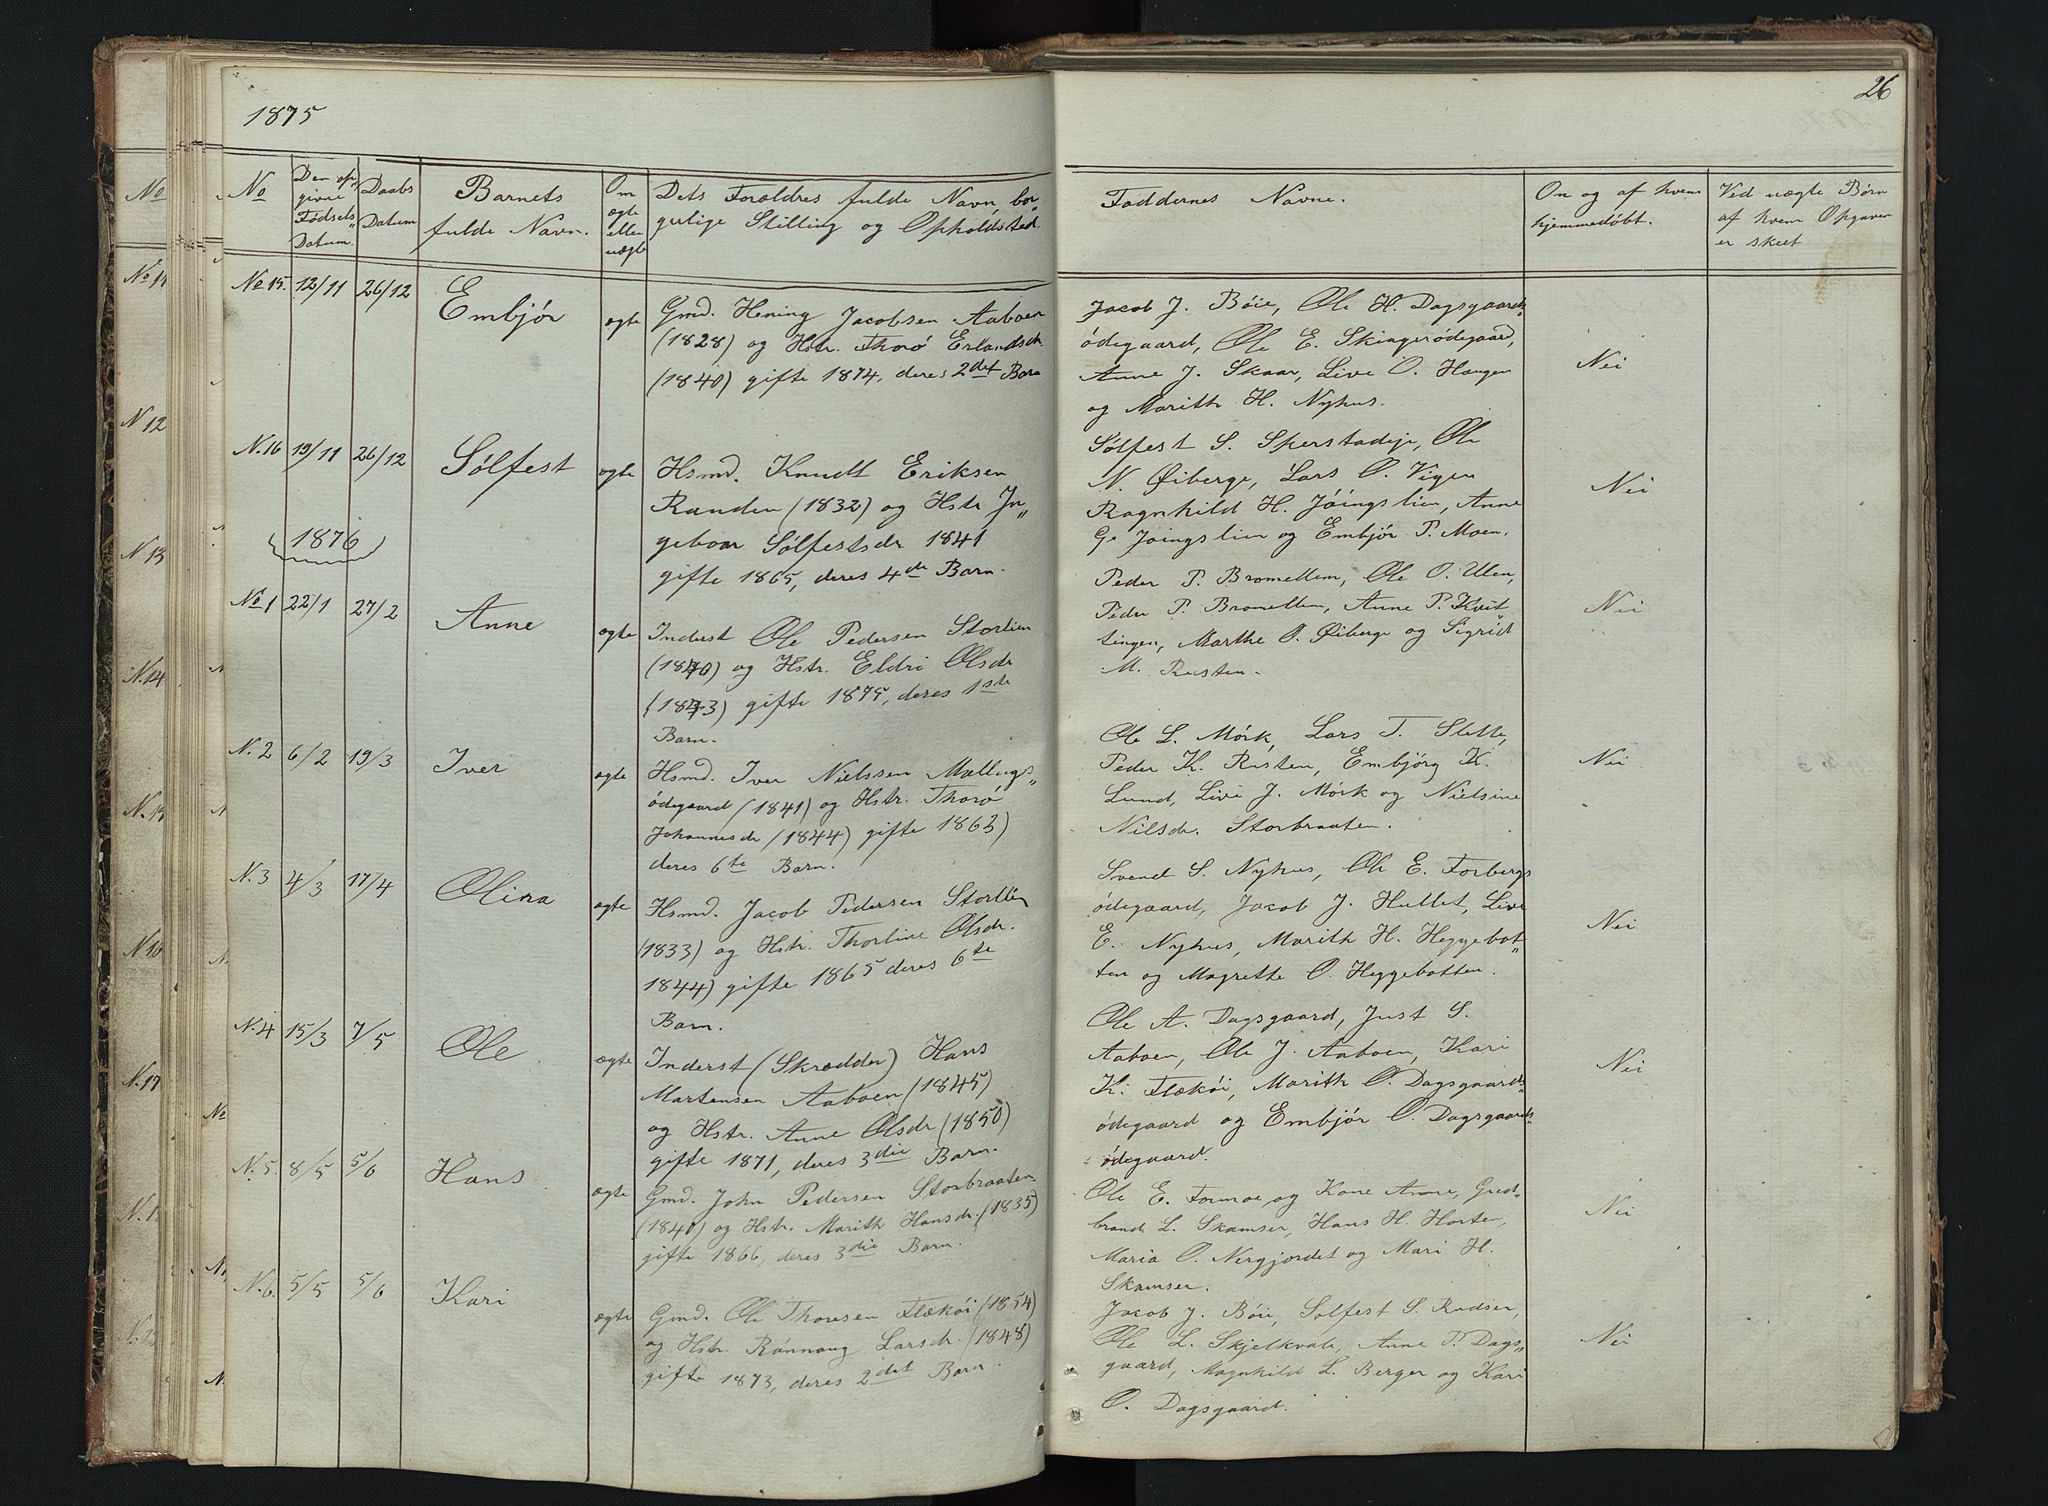 1875
26
No
Den op„
givne
Fødsels„
Datum.
Daabs
Datum
Barnets
fulde Navn.
Om
ægte
eller
uægte
Dets Forældres fulde Navn, bor„
gerlige Stilling og Opholdsted.
Faddernes Navne.
Om og af hvem
hjemmedøbt.
Ved uægte Børn
af hvem Opgaven
er skeet
No 15. 12/11 26/12 Embjør ægte
Gmd. Hening Jacobsen Aaboen
(1828) og Hstr. Thorø Erlandsdr.
(1840) gifte 1874, deres 2det Barn
Jacob J. Böie, Ole H. Dagsgaards„
ødegaard, Ole E. Skingsrødegaard,
Anne J. Skaar, Live O. Haugen
og Marith H. Nyhus.
Nei
N. 16 19/11 26/12 Sølfest ægte
Hsmd. Knudt Eriksen
Randen (1832) og Hstr In„
geboor Sølfestsdr 1841
gifte 1865, deres 4de Barn.
Sølfest S. Sperstadeje, Ole
N. Øiberge, Lars O. Vigen
Ragnhild H. Jøingslien, Anne
G. Jøingslien og Embjør P. Moen.
Nei
1876
No 1 22/1 27/2 Anne ægte
Inderst Ole Pedersen Storlien
(1840) og Hstr. Eldri Olsdr
(1843) gifte 1875, deres 1ste
Barn.
Peder P. Bromellem, Ole O. Ulen,
Peder P. Bromellem, Anne P. Kvit„
tingen, Marthe O. Øiberge og Sigrid
M. Rusten.
Nei
N. 2 6/2 19/3 Iver ægte
Hsmd. Iver Nielssen Mællugs„
ødegaard (1841) og Hstr. Thorø
Johannesdr (1844) gifte 1863)
deres 6te Barn.
Ole L. Mørk, Lars T. Slette,
Peder K. Rusten, Embjørg K.
Lund, Live J. Mørk og Nielsine
Nilsdr. Storbraaten.
Nei
N. 3 4/3 17/4 Olina ægte
Hsmd. Jacob Pedersen Storlien
(1833) og Hstr. Thorline Olsdr.
1844) gifte 1865 deres 6te
Barn.
Svend S. Nyhus, Ole E. Forbergs
ødegaard, Jacob J. Hullet, Live
E. Nyhus, Marith H. Heggebot„
ten og Magrette O. Heggebotten.
Nei
N. 4 15/3 7/5 Ole ægte
Inderst (Skrædder) Hans
Martensen Aaboen (1845)
og Hstr. Anne Olsdr (1850)
gifte 1871, deres 3die Barn.
Ole A. Dagsgaard, Just S.
Aaboen, Ole J. Aaboen, Kari
K. Flækøi, Marith O. Dagsgaards„
ødegaard og Embjør O. Dagsgaards„
ødegaard.
Nei
N. 5. 8/5 5/6 Hans ægte
Gmd. John Pedersen Storbraaten
(1840) og Hstr. Marith Hansdr. (1835)
gifte 1866, deres 3die Barn.
Ole E. Formoe og Kone Anne, Gud„
brand L. Skamser, Hans H. Horten,
Maria O. Nergjordet og Mari H.
Skamser.
Nei
N. 6. 5/5 5/6 Kari ægte
Gmd. Ole Thoresen Flækøi (1854)
og Hstr. Rønnaug Larsdr. (1848)
gifte 1873, deres 2det Barn.
Jacob J. Böie, Solfest S. Rudser,
Ole L. Skjelkvale, Anne T. Dags„
gaard, Magnhild L. Berger og Kari
O. Dagsgaard.
Nei
No
No 11
N 12
N 13
N. 14
N. 17